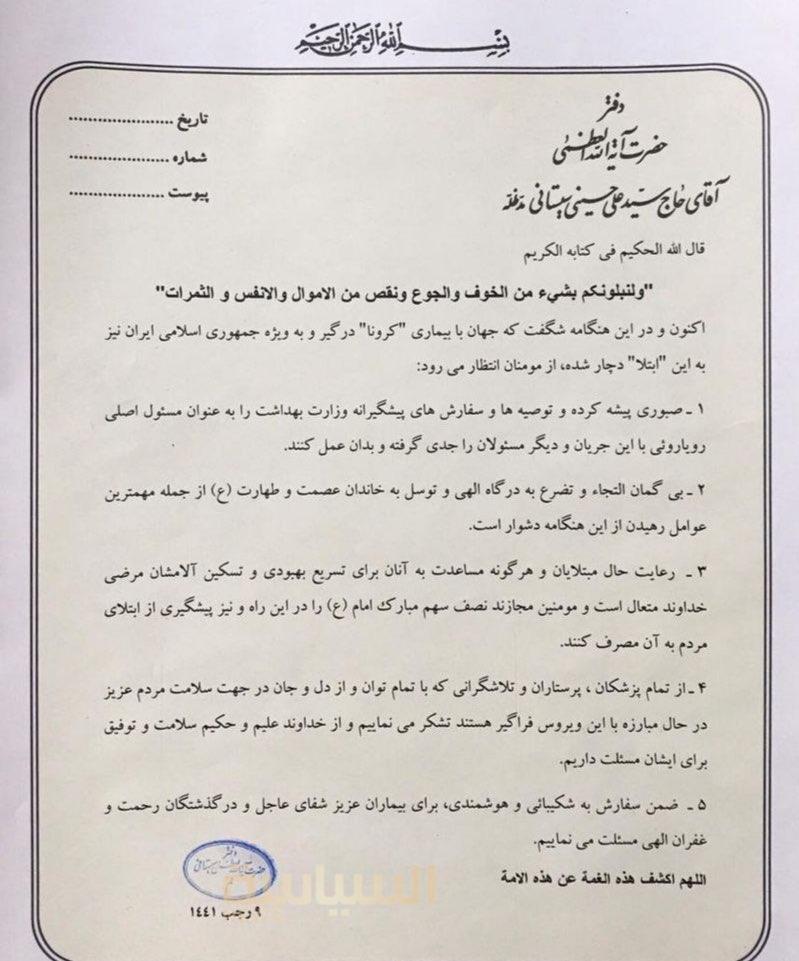 بسم الله الرحمن الرحیم
دفتر
حضرت آیة الله العظمی
آقای حاج سید علی حسینی سیستانی مدظله
تاریخ ......................
شماره .....................
پیوست ....................
قال الله الحکیم فی کتابه الکریم
"ولنبلونکم بشيء من الخوف والجوع ونقص من الاموال والانفس و الثمرات"
اکنون و در این هنگامه شگفت که جهان با بیماری "کرونا" درگیر و به ویژه جمهوری اسلامی ایران نیز
به این "ابتلا" دچار شده، از مومنان انتظار می رود:
۱ ـ صبوری پیشه کرده و توصیه ها و سفارش های پیشگیرانه وزارت بهداشت را به عنوان مسئول اصلی
رویاروئی با این جریان و دیگر مسئولان را جدی گرفته و بدان عمل کنند.
۲ ـ بی گمان التجاء و تضرع به درگاه الهی و توسل به خاندان عصمت و طهارت (ع) از جمله مهمترین
عوامل رهیدن از این هنگامه دشوار است.
۳ ـ رعایت حال مبتلایان و هرگونه مساعدت به آنان برای تسریع بهبودی و تسکین آلامشان مرضی
خداوند متعال است و مومنین مجازند نصف سهم مبارک امام (ع) را در این راه و نیز پیشگیری از ابتلای
مردم به آن مصرف کنند.
۴ ـ از تمام پزشکان ، پرستاران و تلاشگرانی که با تمام توان و از دل و جان در جهت سلامت مردم عزیز
در حال مبارزه با این ویروس فراگیر هستند تشکر می نماییم و از خداوند علیم و حکیم سلامت و توفیق
برای ایشان مسئلت داریم.
۵ ـ ضمن سفارش به شکیبائی و هوشمندی، برای بیماران عزیز شفای عاجل و درگذشتگان رحمت و
غفران الهی مسئلت می نماییم.
اللهم اکشف هذه الغمة عن هذه الامة
دفتر
السیاسیة
۹ رجب ۱۴۴۱